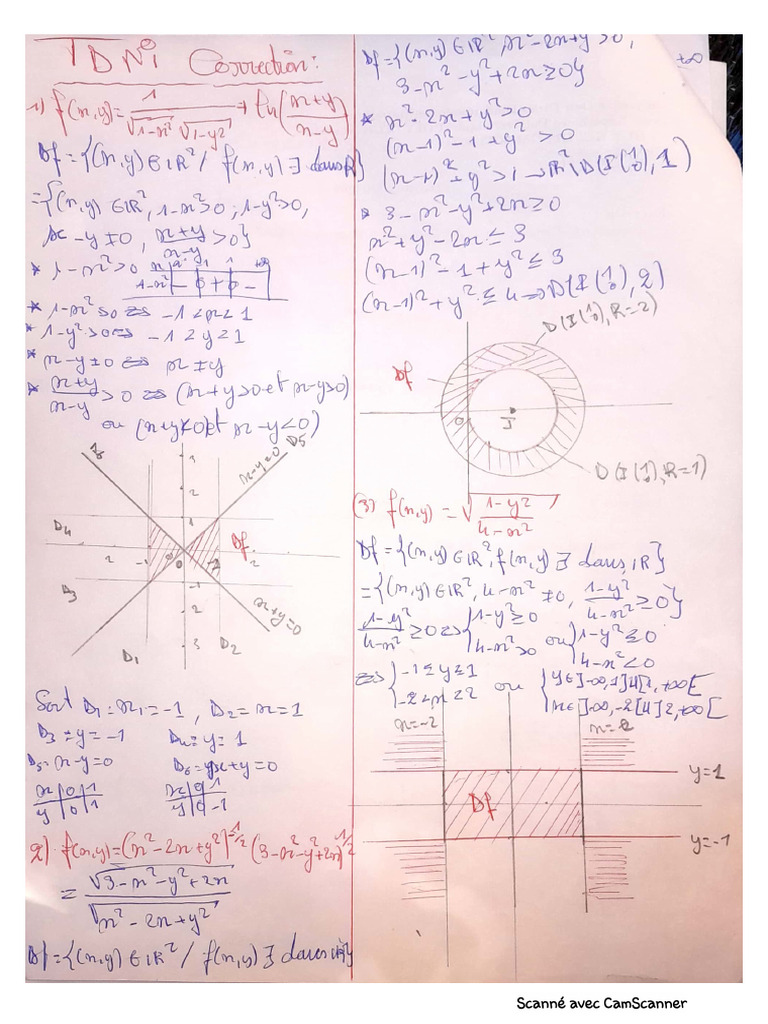 TD N°1 Correction:
1) f(x,y) = 1/(√1-x² √1-y²) + ln((x+y)/(x-y))
Df = {(x,y) ∈ IR² / f(x,y) ∃ dans IR}
= {(x,y) ∈ IR², 1-x²>0 ; 1-y²>0,
x-y≠0, (x+y)/(x-y) >0}
* 1-x²>0
1-x² | - 0 + 0 -
* 1-x²>0 ⇔ -1<x<1
* 1-y²>0 ⇔ -1<y<1
* x-y≠0 ⇔ x≠y
* (x+y)/(x-y) >0 ⇔ (x+y>0 et x-y>0)
ou (x+y<0 et x-y<0)
D6
x-y=0
D5
3
2
1
D4
Df
2
-1
0
2
-1
D3
2
x+y=0
3
D1
D2
Soit D1 : x1=-1, D2 = x=1
D3 = y=-1 D4 = y=1
D5 = x-y=0 D6 = x+y=0
x | 0 | 1
y | 0 | 1
x | 0 | 1
y | 0 | -1
2) f(x,y) = (x²-2x+y²)^-1/2 (3-x²-y²+2x)^1/2
= √3-x²-y²+2x / √x²-2x+y²
Df = {(x,y) ∈ IR² / f(x,y) ∃ dans IR}
Df = {(x,y) ∈ IR², x²-2x+y²>0,
3-x²-y²+2x≥0}
+∞
* x²-2x+y²>0
(x-1)²-1+y²>0
(x-1)²+y²>1 → IR²\D(I(1,0),1)
* 3-x²-y²+2x≥0
x²+y²-2x≤3
(x-1)²-1+y²≤3
(x-1)²+y²≤4 ⇒ D(I(1,0),2)
D(I(1,0),R=2)
Df
0
I
D(I(1,0),R=1)
(3) f(x,y) = √((1-y²)/(4-x²))
Df = {(x,y) ∈ IR², f(x,y) ∃ dans IR}
= {(x,y) ∈ IR², 4-x²≠0, (1-y²)/(4-x²) ≥0}
(1-y²)/(4-x²) ≥0 ⇔ {1-y²≥0 ou {1-y²≤0
4-x²>0 4-x²<0
⇔ {-1≤y≤1 ou {y∈]-∞,-1]U[1,+∞[
-2<x<2 x∈]-∞,-2[U]2,+∞[
x=-2
x=2
y=1
Df
y=-1
Scanné avec CamScanner